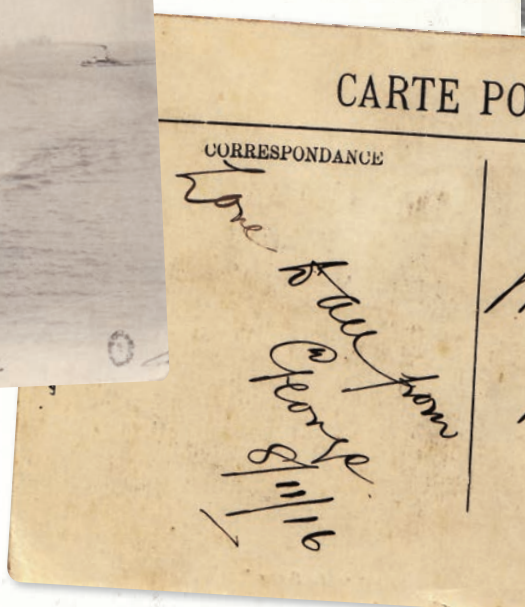 CARTE PO
CORRESPONDANCE
Love
to all from
George
8/11/16